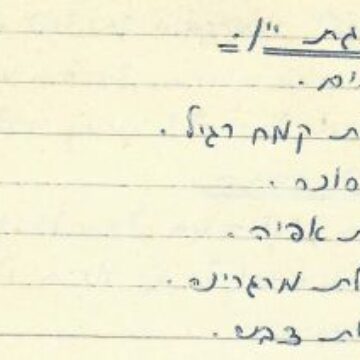 גת יין.
ים.
ת קמח רגיל.
סוכר.
ת אפיה.
לת מרגרינה.
ות דבש.